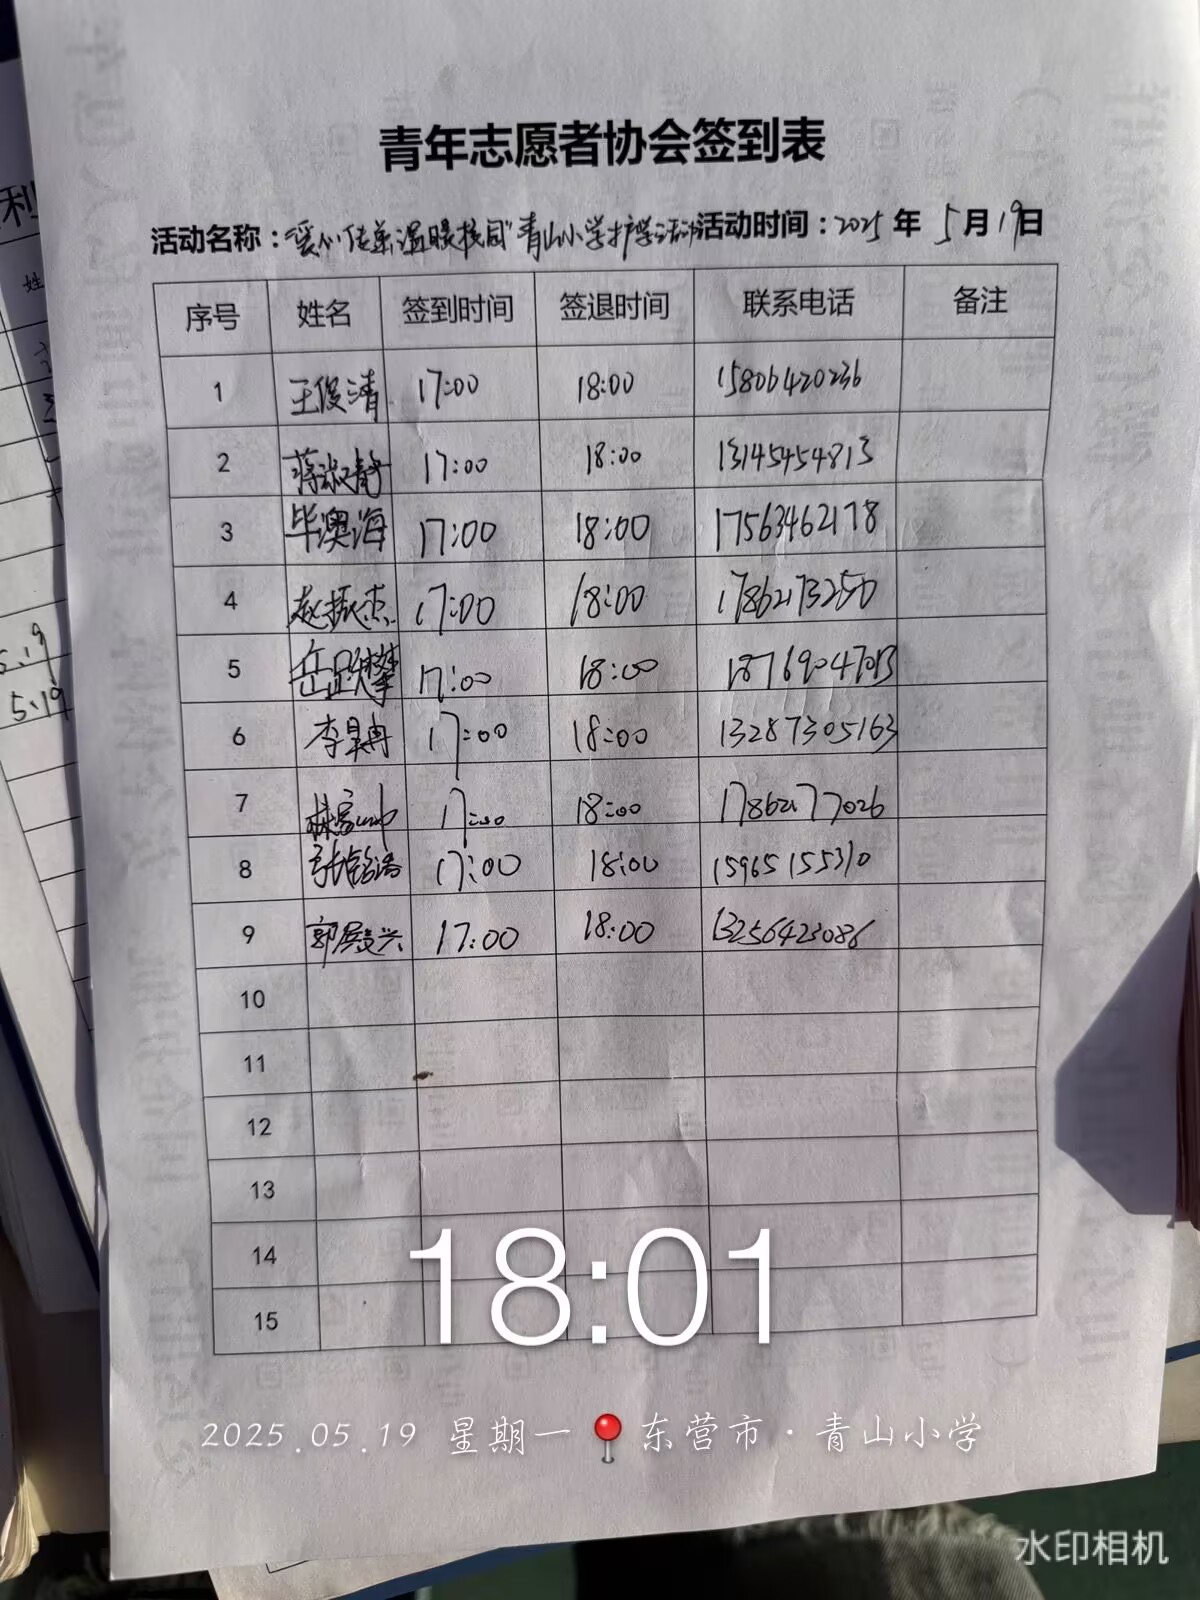 青年志愿者协会签到表
活动名称：“爱心传递温暖校园”青山小学护学活动 活动时间：2025年 5月19日
序号 姓名 签到时间 签退时间 联系电话 备注
1 王俊清 17:00 18:00 15806420236
2 蒋淑静 17:00 18:00 13145454813
3 毕澳海 17:00 18:00 17563462178
4 赵振杰 17:00 18:00 17862173250
5 岳跃攀 17:00 18:00 18769047013
6 李昊冉 17:00 18:00 13287305163
7 17:00 18:00 17862177026
8 张铭浩 17:00 18:00 15965155310
9 郭 兴 17:00 18:00 13256423086
10
11
12
13
14
15
18:01
2025.05.19 星期一 东营市·青山小学
水印相机
利
姓
5.19
5.19